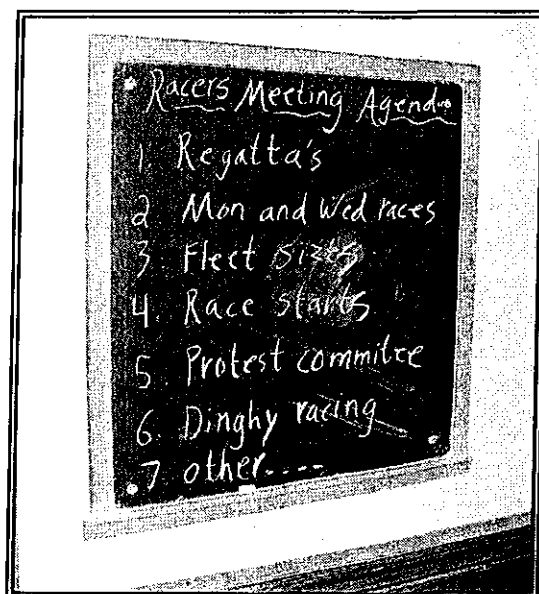 Racers Meeting Agenda
1 Regatta's
2 Mon and Wed races
3 Fleet sizes
4. Race starts
5 Protest commitee
6. Dinghy racing
7 other----